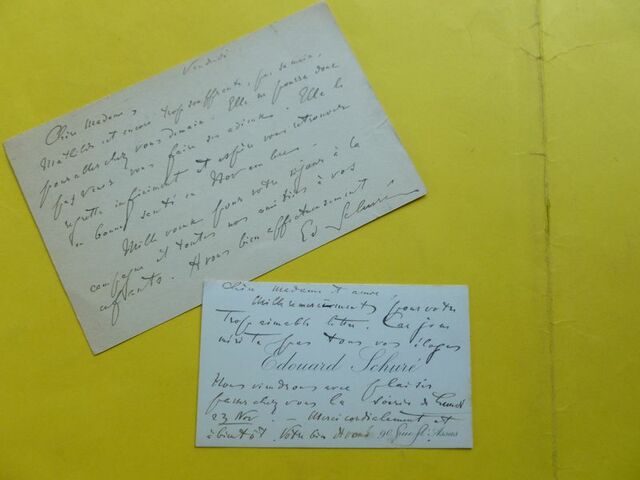 Vendredi
Chère Madame,
Mathilde est encore trop souffrante, ce matin,
pour aller chez vous demain. Elle ne pourra donc
pas venir vous faire ses adieux. Elle le
regrette infiniment et espère vous retrouver
en bonne santé en Novembre.
Mille vœux pour votre séjour à la
campagne et toutes nos amitiés à vos
enfants. A vous bien affectueusement
Ed Schuré
Chère madame et amie
Mille remerciements pour votre
trop aimable lettre. Car je ne
mérite pas tous vos éloges
Edouard Schuré
Nous viendrons avec plaisir
chez vous la soirée de lundi
23 Nov. — Merci cordialement et
à bientôt. Votre bien dévoué 90 Rue St. Assas